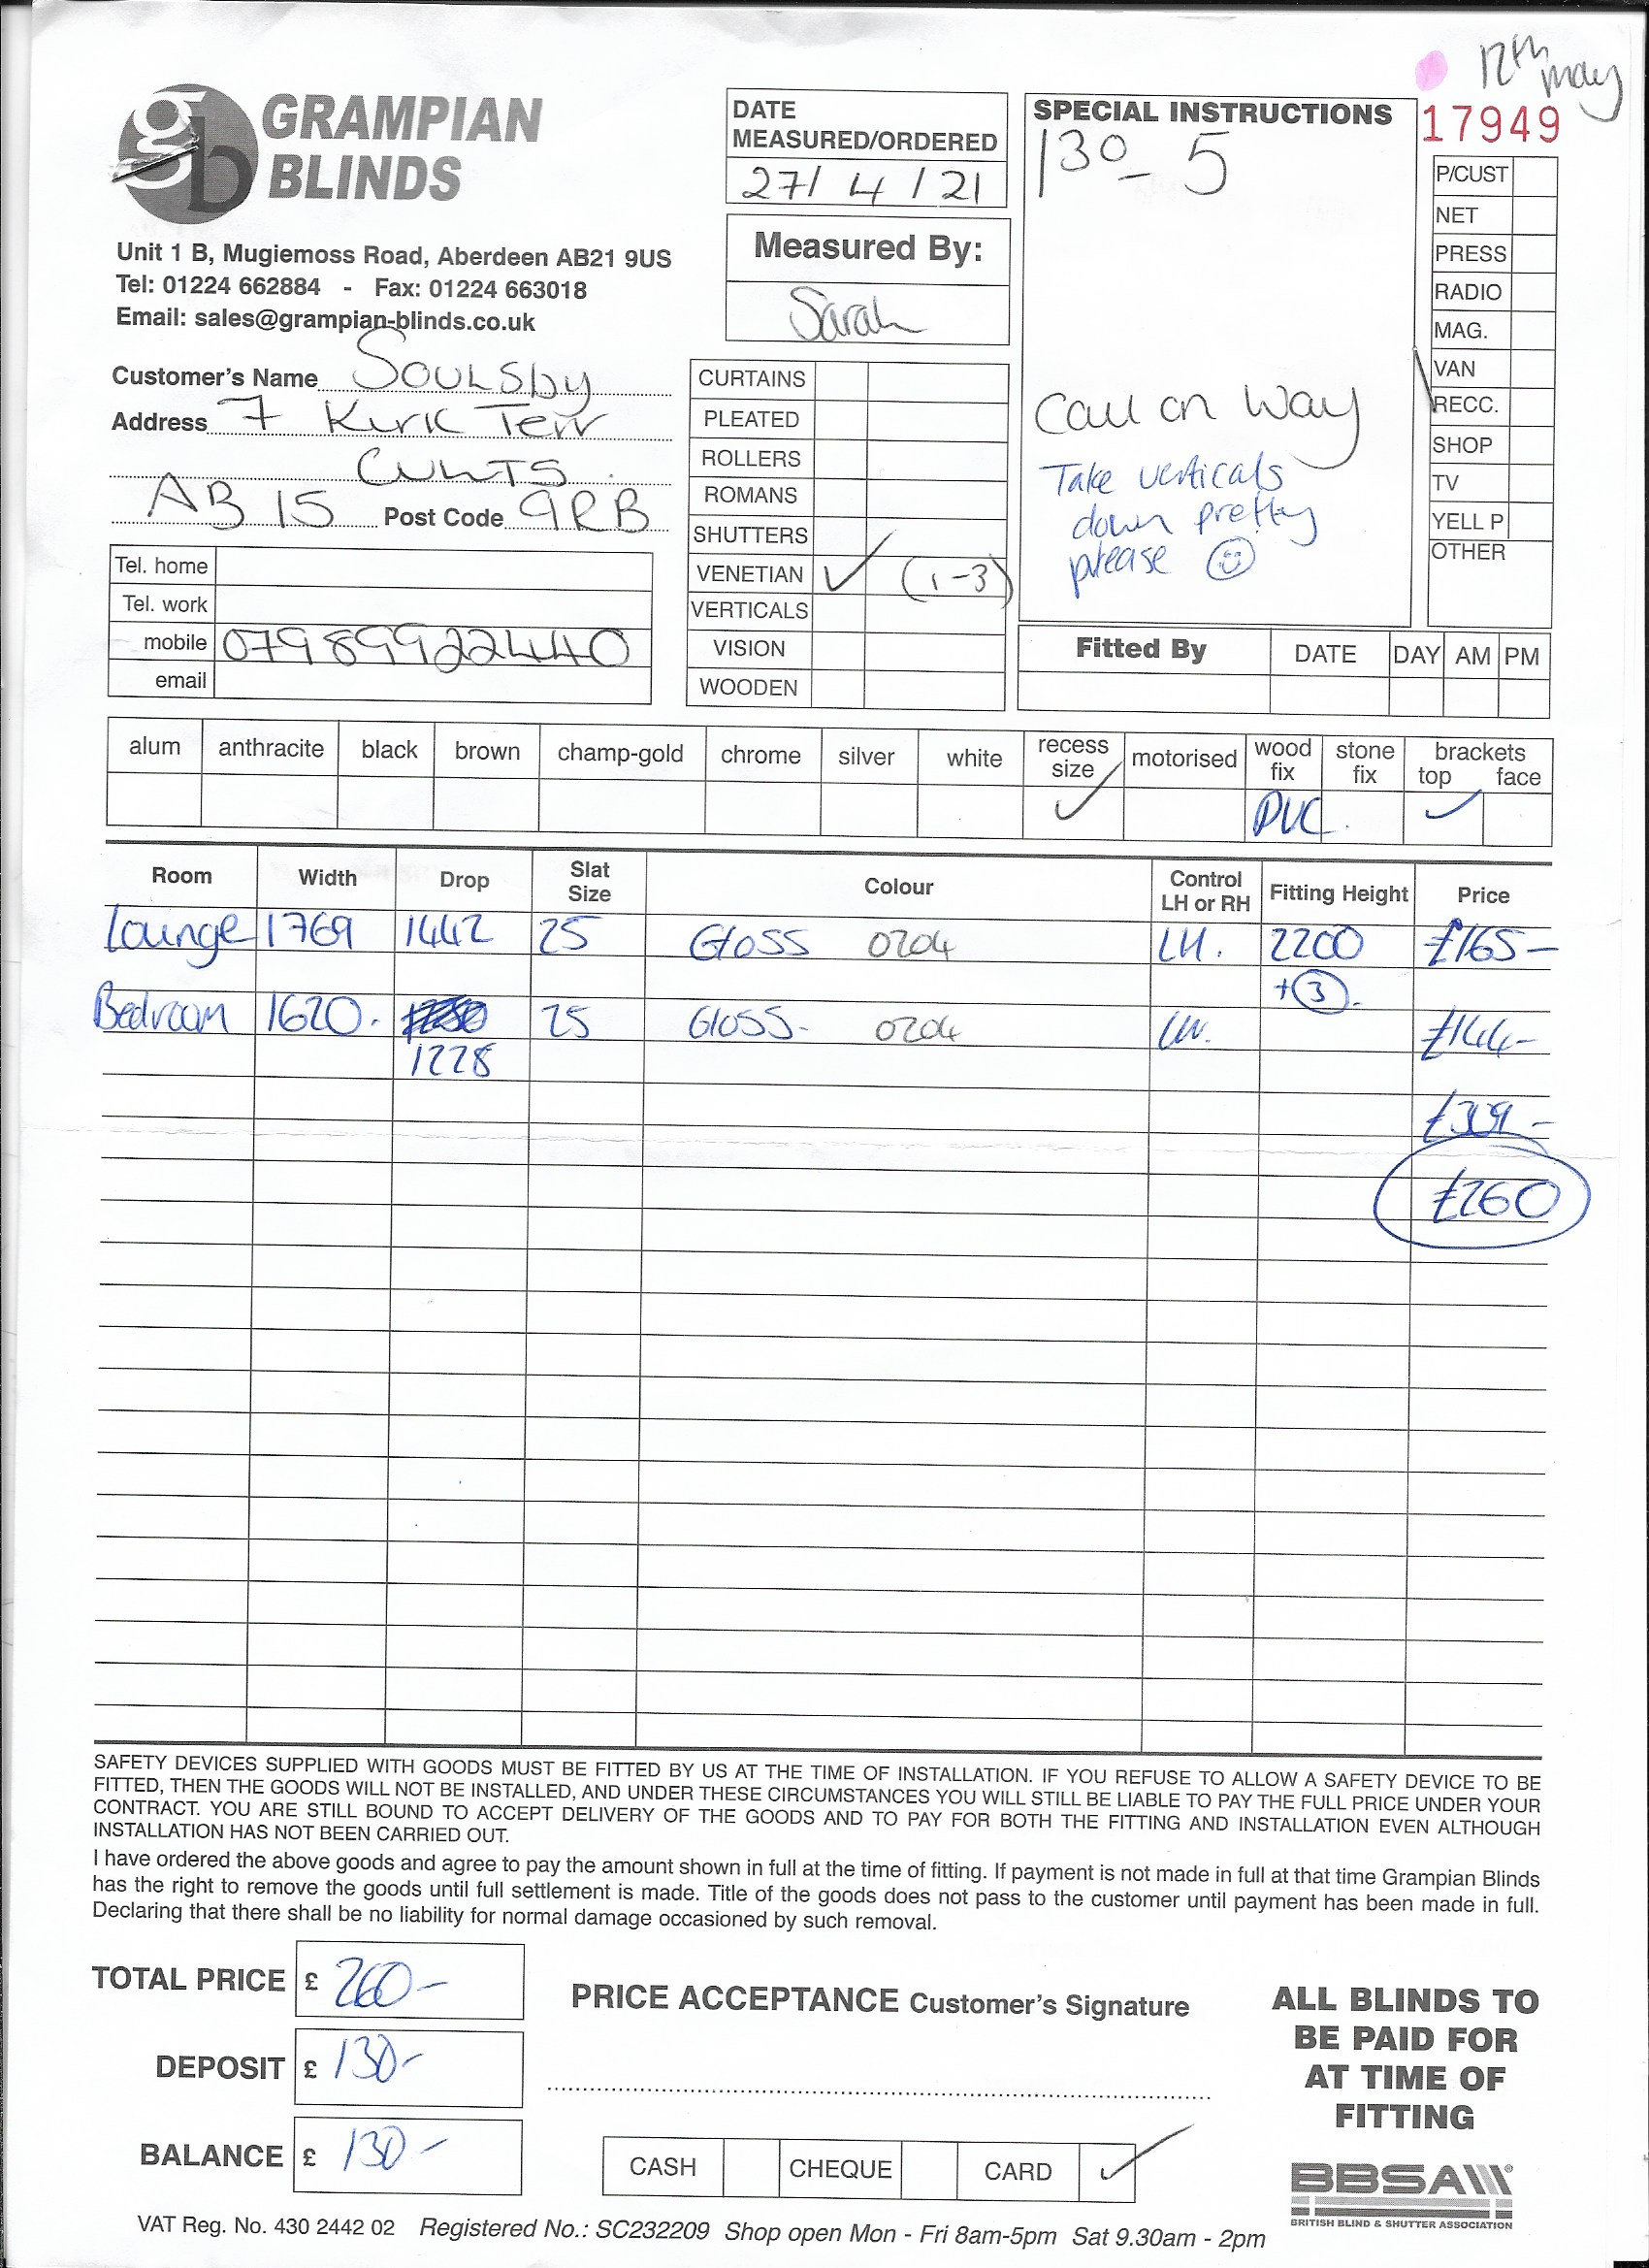 12th may
17949
gb GRAMPIAN BLINDS
Unit 1 B, Mugiemoss Road, Aberdeen AB21 9US
Tel: 01224 662884 - Fax: 01224 663018
Email: sales@grampian-blinds.co.uk
DATE MEASURED/ORDERED
27/4/21
Measured By:
Sarah
SPECIAL INSTRUCTIONS
130 - 5
Call on Way
Take verticals
down pretty
please
P/CUST
NET
PRESS
RADIO
MAG.
VAN
RECC.
SHOP
TV
YELL P
OTHER
Customer's Name Soulsby
Address 7 Kirk Terr
Cults
AB15 Post Code 9RB
Tel. home
Tel. work
mobile 07989922440
email
CURTAINS
PLEATED
ROLLERS
ROMANS
SHUTTERS
VENETIAN ✓ (1-3)
VERTICALS
VISION
WOODEN
Fitted By DATE DAY AM PM
alum anthracite black brown champ-gold chrome silver white recess size motorised wood fix stone fix brackets top face
✓ PVC. ✓
Room Width Drop Slat Size Colour Control LH or RH Fitting Height Price
Lounge 1769 1442 25 Gloss 0204 LH. 2200 £165-
+3.
Bedroom 1620. 25 Gloss. 0204 LH. £144-
1228
£309-
£260
SAFETY DEVICES SUPPLIED WITH GOODS MUST BE FITTED BY US AT THE TIME OF INSTALLATION. IF YOU REFUSE TO ALLOW A SAFETY DEVICE TO BE
FITTED, THEN THE GOODS WILL NOT BE INSTALLED, AND UNDER THESE CIRCUMSTANCES YOU WILL STILL BE LIABLE TO PAY THE FULL PRICE UNDER YOUR
CONTRACT. YOU ARE STILL BOUND TO ACCEPT DELIVERY OF THE GOODS AND TO PAY FOR BOTH THE FITTING AND INSTALLATION EVEN ALTHOUGH
INSTALLATION HAS NOT BEEN CARRIED OUT.
I have ordered the above goods and agree to pay the amount shown in full at the time of fitting. If payment is not made in full at that time Grampian Blinds
has the right to remove the goods until full settlement is made. Title of the goods does not pass to the customer until payment has been made in full.
Declaring that there shall be no liability for normal damage occasioned by such removal.
TOTAL PRICE £ 260-
DEPOSIT £ 130-
BALANCE £ 130-
PRICE ACCEPTANCE Customer's Signature
CASH CHEQUE CARD ✓
ALL BLINDS TO
BE PAID FOR
AT TIME OF
FITTING
BBSA®
BRITISH BLIND & SHUTTER ASSOCIATION
VAT Reg. No. 430 2442 02 Registered No.: SC232209 Shop open Mon - Fri 8am-5pm Sat 9.30am - 2pm